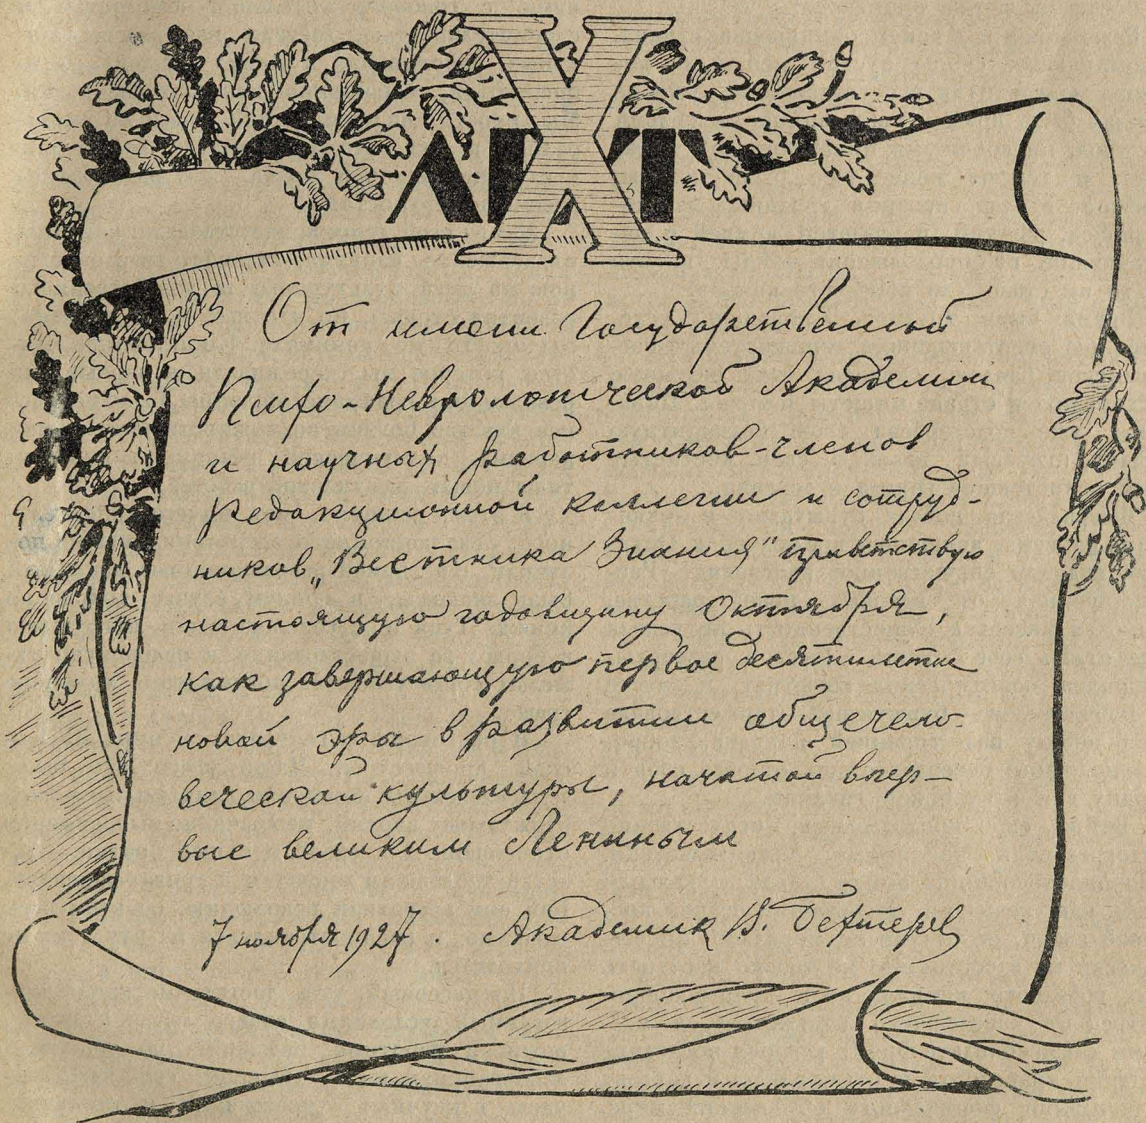 X
ЛЕТ
От имени Государственной
Психо-Неврологической Академии
и научных работников-членов
редакционной коллегии и сотруд-
ников „Вестника Знания" приветствую
настоящую годовщину Октября,
как завершающую первое десятилетие
новой эры в развитии общечело-
веческой культуры, начатой впер-
вые великим Лениным
7 ноября 1927. Академик В. Бехтерев